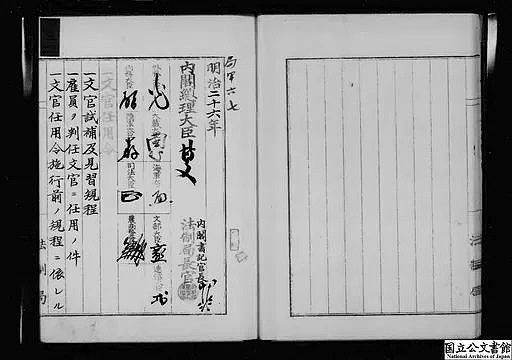 局甲六七
明治二十六年
内閣総理大臣
内閣書記官長
法制局長官
外務大臣
大蔵大臣
海軍大臣
文部大臣
逓信大臣
内務大臣
陸軍大臣
司法大臣
農商務大臣
一文官任用令
一文官試補及見習規程
一雇員ヲ判任文官ニ任用ノ件
一文官任用令施行前ノ規程ニ依レル
法制局
法制局
国立公文書館
National Archives of Japan